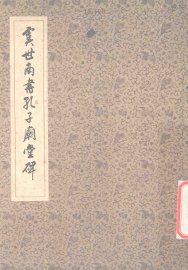 虞世南書孔子廟堂碑